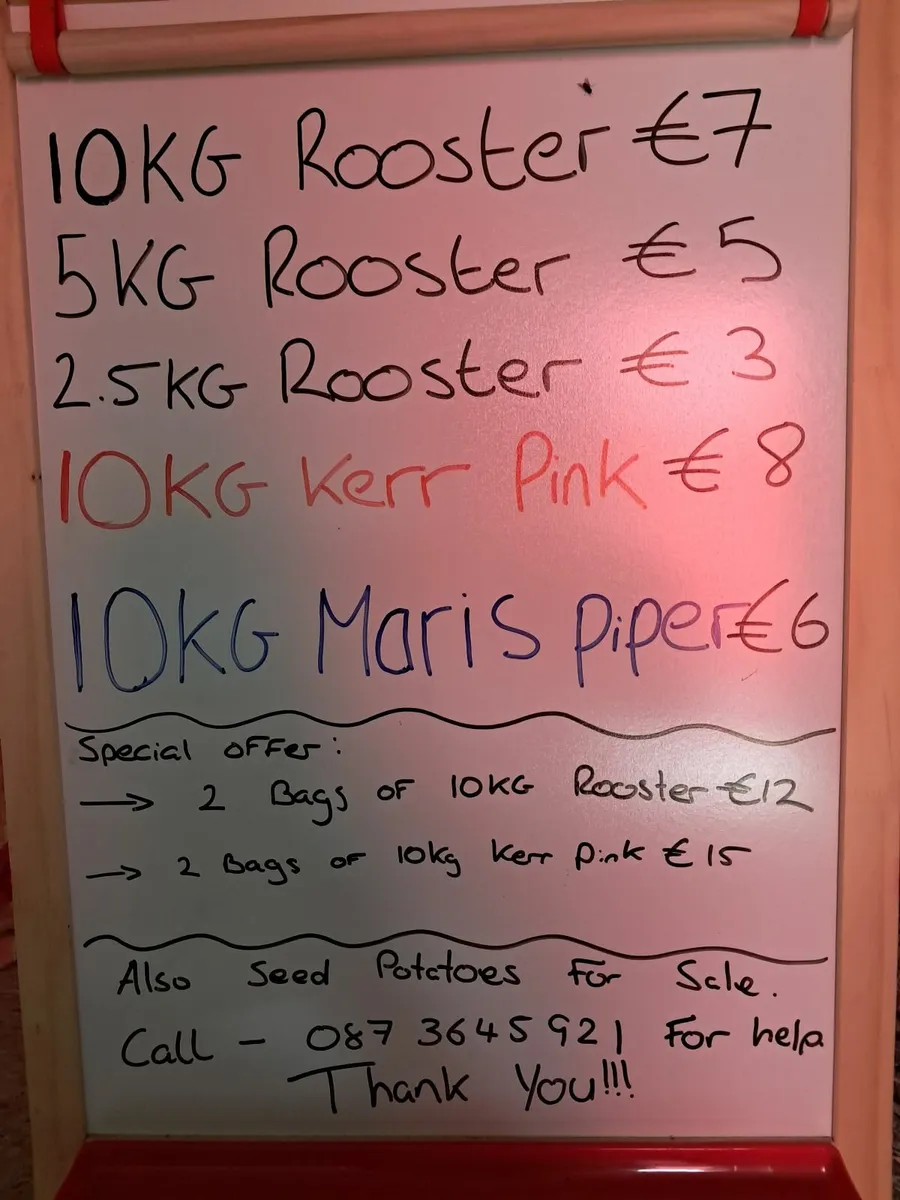 10KG Rooster €7
5KG Rooster €5
2.5KG Rooster €3
10KG Kerr Pink €8
10KG Maris Piper €6
Special offer:
→ 2 Bags of 10KG Rooster €12
→ 2 Bags of 10kg Kerr Pink €15
Also Seed Potatoes For Sale.
Call - 087 3645921 For help
Thank You!!!